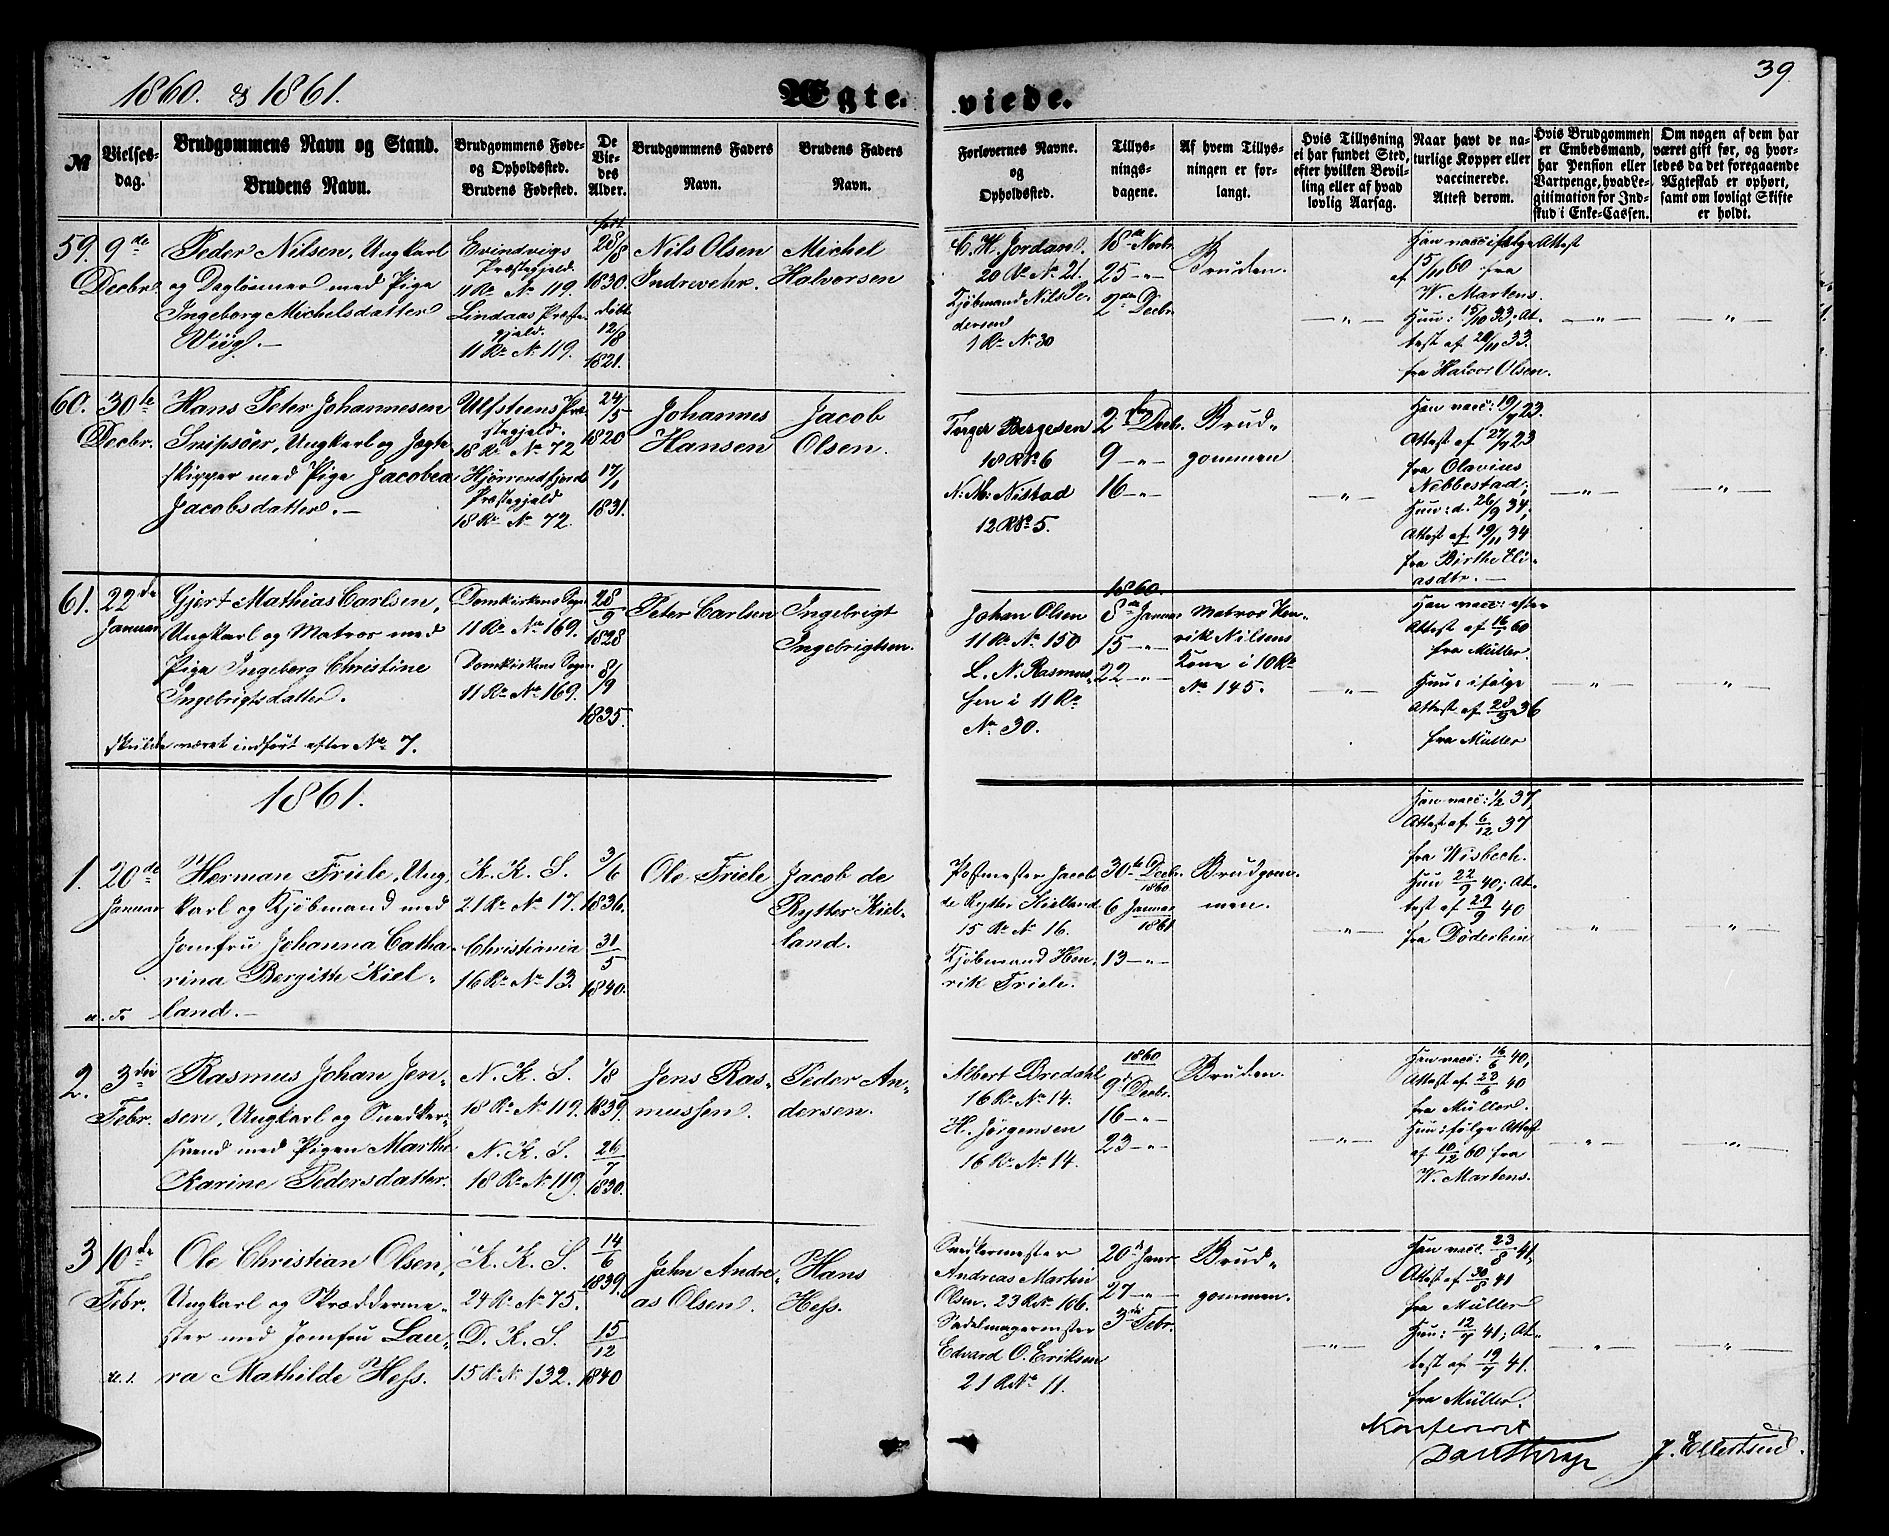 1860. & 1861.
Ægteviede.
39.
№
Vielses-
dag.
Brudgommens Navn og Stand.
Brudens Navn.
Brudgommens Føde-
og Opholdssted.
Brudens Fødested.
De
Vie-
des
Alder.
Brudgommens Faders
Navn.
Brudens Faders
Navn.
Forlovernes Navne.
og
Opholdssted.
Tillys-
nings-
dagene.
Af hvem Tillys-
ningen er for-
langt.
Hvis Tillysning
ei har fundet Sted,
efter hvilken Bevil-
ling eller af hvad
lovlig Aarsag.
Naar havt de na-
turlige Kopper eller
vaccinerede.
Attest derom.
Hvis Brudgommen
er Embedsmand,
har Pension eller
Vartpenge, hvad Le-
gitimation for Ind-
skud i Enke-Cassen.
Om nogen af dem har
været gift før, og hvor-
ledes da det foregaaende
Ægteskab er ophørt,
samt om lovligt Skifte
er holdt.
59.
9de
Decbr
Peder Nilsen, Ungkarl
og Dagløsner med Pige
Ingeborg Michelsdatter
Wiig.
Evindvigs
Præstegjeld.
11 Ro No 119.
Lindaas Præste-
gjeld.
11 Ro No 119.
født
28/8
1830.
døbt
12/8
1821.
Nils Olsen
Indrevehr.
Michel
Halvorsen
C. H. Jordan.
20 Ro No 21.
Kjøbmand Nils Pe-
dersen
1 Ro No 30
18de Novbr
25 — „
2den Decbr
Bruden.
— „ —
Han vacc: ifølge Attest
af 15/11 60 fra
W. Martens.
Hun: 15/10 33; At-
test af 20/11 33.
fra Halvor Olsen.
— „ —
— „ —
60.
30te
Decbr.
Hans Peter Johannesen
Snipsøer, Ungkarl og Jagte-
skipper med Pige Jacobea
Jacobsdatter.
Ulfsteens Præ-
stegjeld.
18 Ro No 72
Hjørrendfjord
Præstegjeld
18 Ro No 72.
24/5
1820
17/1
1831.
Johannes
Hansen
Jacob
Olsen.
Torger Bergesen
18 R No 6
N: M: Nistad
12 R No 5.
2den Decbr.
9 — „
16 — „
Brud-
gommen
— „ —
Han vacc: 19/7 23.
Attest af 27/7 23
fra Olavius
Nebbestad;
Hun: d. 26/9 34;
Attest af 19/11 34
fra Birthe Eli-
asdtr. —
— „ —
— „ —
61.
22de
Januar
Gjert Mathias Carlsen,
Ungkarl og Matros med
Pige Ingeborg Christine
Ingebrigtsdatter.
skulde været indført efter No 7.
Domkirkens Sogn
11 Ro No 169.
Domkirkens Sogn
11 Ro No 169.
28/9
1828
8/19
1835.
Peter Carlsen
Ingebrigt
Ingebrigtsen.
Johan Olsen
11 Ro No 150
L. N. Rasmus-
sen i 11 Ro
No 30.
1860.
8de Januar
15 — „
22 — „
Matros Hen-
rik Nilsens
Kone i 10 Ro
No 145.
— „ —
Han vacc: efter
Attest af 16/1 60
fra Müller.
Hun: ifølge
Attest af 28/9 36
fra Müller
— „ —
— „ —
1861.
1.
20de
Januar
Herman Friele, Ung-
karl og Kjøbmand med
Jomfru Johanna Catha-
rina Bergitte Kiel-
land. —
K. K. S.
21 Ro No 17.
Christiania
16 Ro No 13.
3/6
1836.
31/5
1840.
Ole Friele
Jacob de
Rytter Kiel-
land.
Postmester Jacob
de Rytter Kielland
15 Ro No 16.
Kjøbmand Hen-
rik Friele.
30te Decbr.
1860
6 Januar
1861
13 — „
Brudgom-
men.
— „ —
Han vacc: 1/2 37,
Attest af 6/12 37
fra Wisbech.
Hun 22/9 40; At-
test af 29/9 40
fra Døderlein
— „ —
— „ —
2.
3die
Febr.
Rasmus Johan Jen-
sen, Ungkarl og Snedker-
svend med Pigen Marthe
Karine Pedersdatter.
N. K. S.
18 Ro No 119.
N. K. S.
18 Ro No 119.
1/8
1839.
26/7
1830.
Jens Ras-
mussen.
Peder An-
dersen.
Albert Bredahl
16 Ro No 14.
H. Jørgensen
16 Ro No 14.
1860
9de Decbr.
16 — „
23 — „
Bruden.
— „ —
Han vacc: 16/6 40,
Attest af 20/6 40
fra Müller.
Hun: følge Attest
af 10/12 60 fra
W. Martens.
— „ —
— „ —
3
10de
Febr.
Ole Christian Olsen,
Ungkarl og Skrædderme-
ster med Jomfru Lau-
ra Mathilde Hess.
K. K. S.
24 Ro No 75.
D. K. S.
15 Ro No 132.
14/6
1839.
15/12
1840
Jahn Andre-
as Olsen.
Hans
Hess.
Snedkermester
Andreas Martin
Olsen. 23 R No 106.
Sadelmagermester
Edvard O. Eriksen
21 R No 11.
20de Januar
27 — „
3die Febr.
Brud-
gommen.
— „ —
Han vacc. 23/8 41,
Attest af 30/8 41
fra Müller
Hun: 12/7 41; At-
test af 19/7 41.
fra Müller.
— „ —
— „ —
Konfereret
J. Ellertsen.